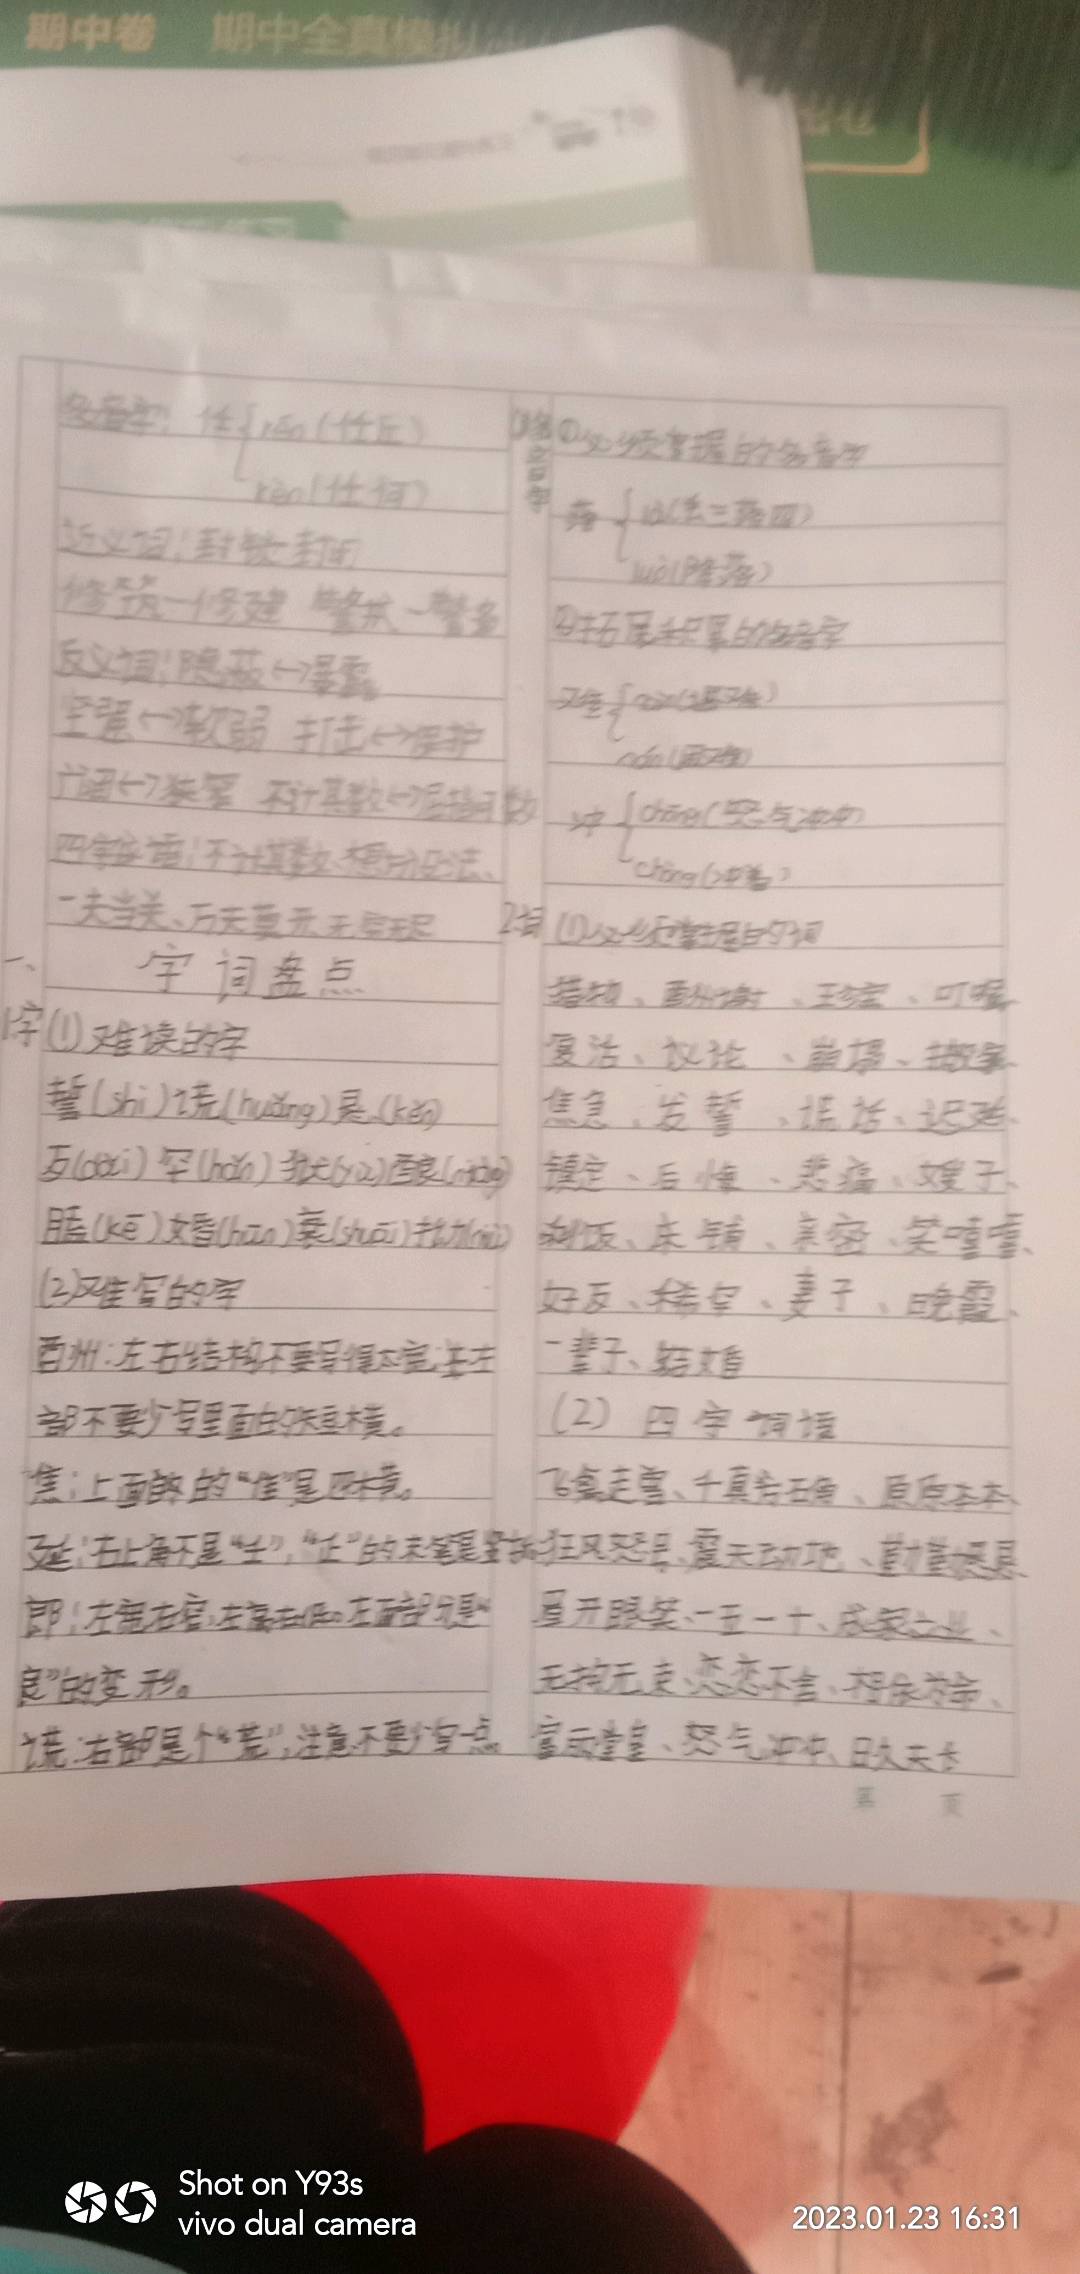 期中卷 期中全真模拟
多音字：任 rén（任丘）
rèn（任何）
近义词：封锁—封闭
修筑—修建 警戒—警备
反义词：隐蔽↔暴露
坚强↔软弱 打击↔保护
不计其数↔屈指可数
四字词语：不计其数、想方设法、
一夫当关、万夫莫开
一、 字词盘点
1.字(1)难读的字
誓(shì)谎(huǎng)恳(kěn)
歹(dǎi)罕(hǎn)
瞌(kē)婚(hūn)衰(shuāi)
(2)难写的字
酬：左右结构不要写得太宽；左
部不要少写里面的短横。
焦：上面的“隹”是四横。
延：右上角不是“士”，“止”的末笔是竖折
郎：左窄右宽，左高右低。左面部分是“
良”的变形。
谎：右部是个“荒”，注意不要少写一点
(3)多音字 ①必须掌握的多音字
落 là(丢三落四)
luò(降落)
②拓展积累的多音字
难 nàn
nán
冲 chōng(怒气冲冲)
chòng(冲着)
2.词 (1)必须掌握的词
猎物、酬谢、珍宝、叮嘱
复活、议论、崩塌、
焦急、发誓、谎话、迟延、
镇定、后悔、悲痛、嫂子、
剩饭、床铺、亲密、笑嘻嘻、
好歹、稀罕、妻子、晚霞、
一辈子、结婚
(2) 四字词语
飞禽走兽、千真万确、原原本本、
狂风怒号、震天动地、勤勤恳恳、
眉开眼笑、一五一十、成家立业、
无拘无束、恋恋不舍、相依为命、
富丽堂皇、怒气冲冲、日久天长
第 页
Shot on Y93s
vivo dual camera
2023.01.23 16:31